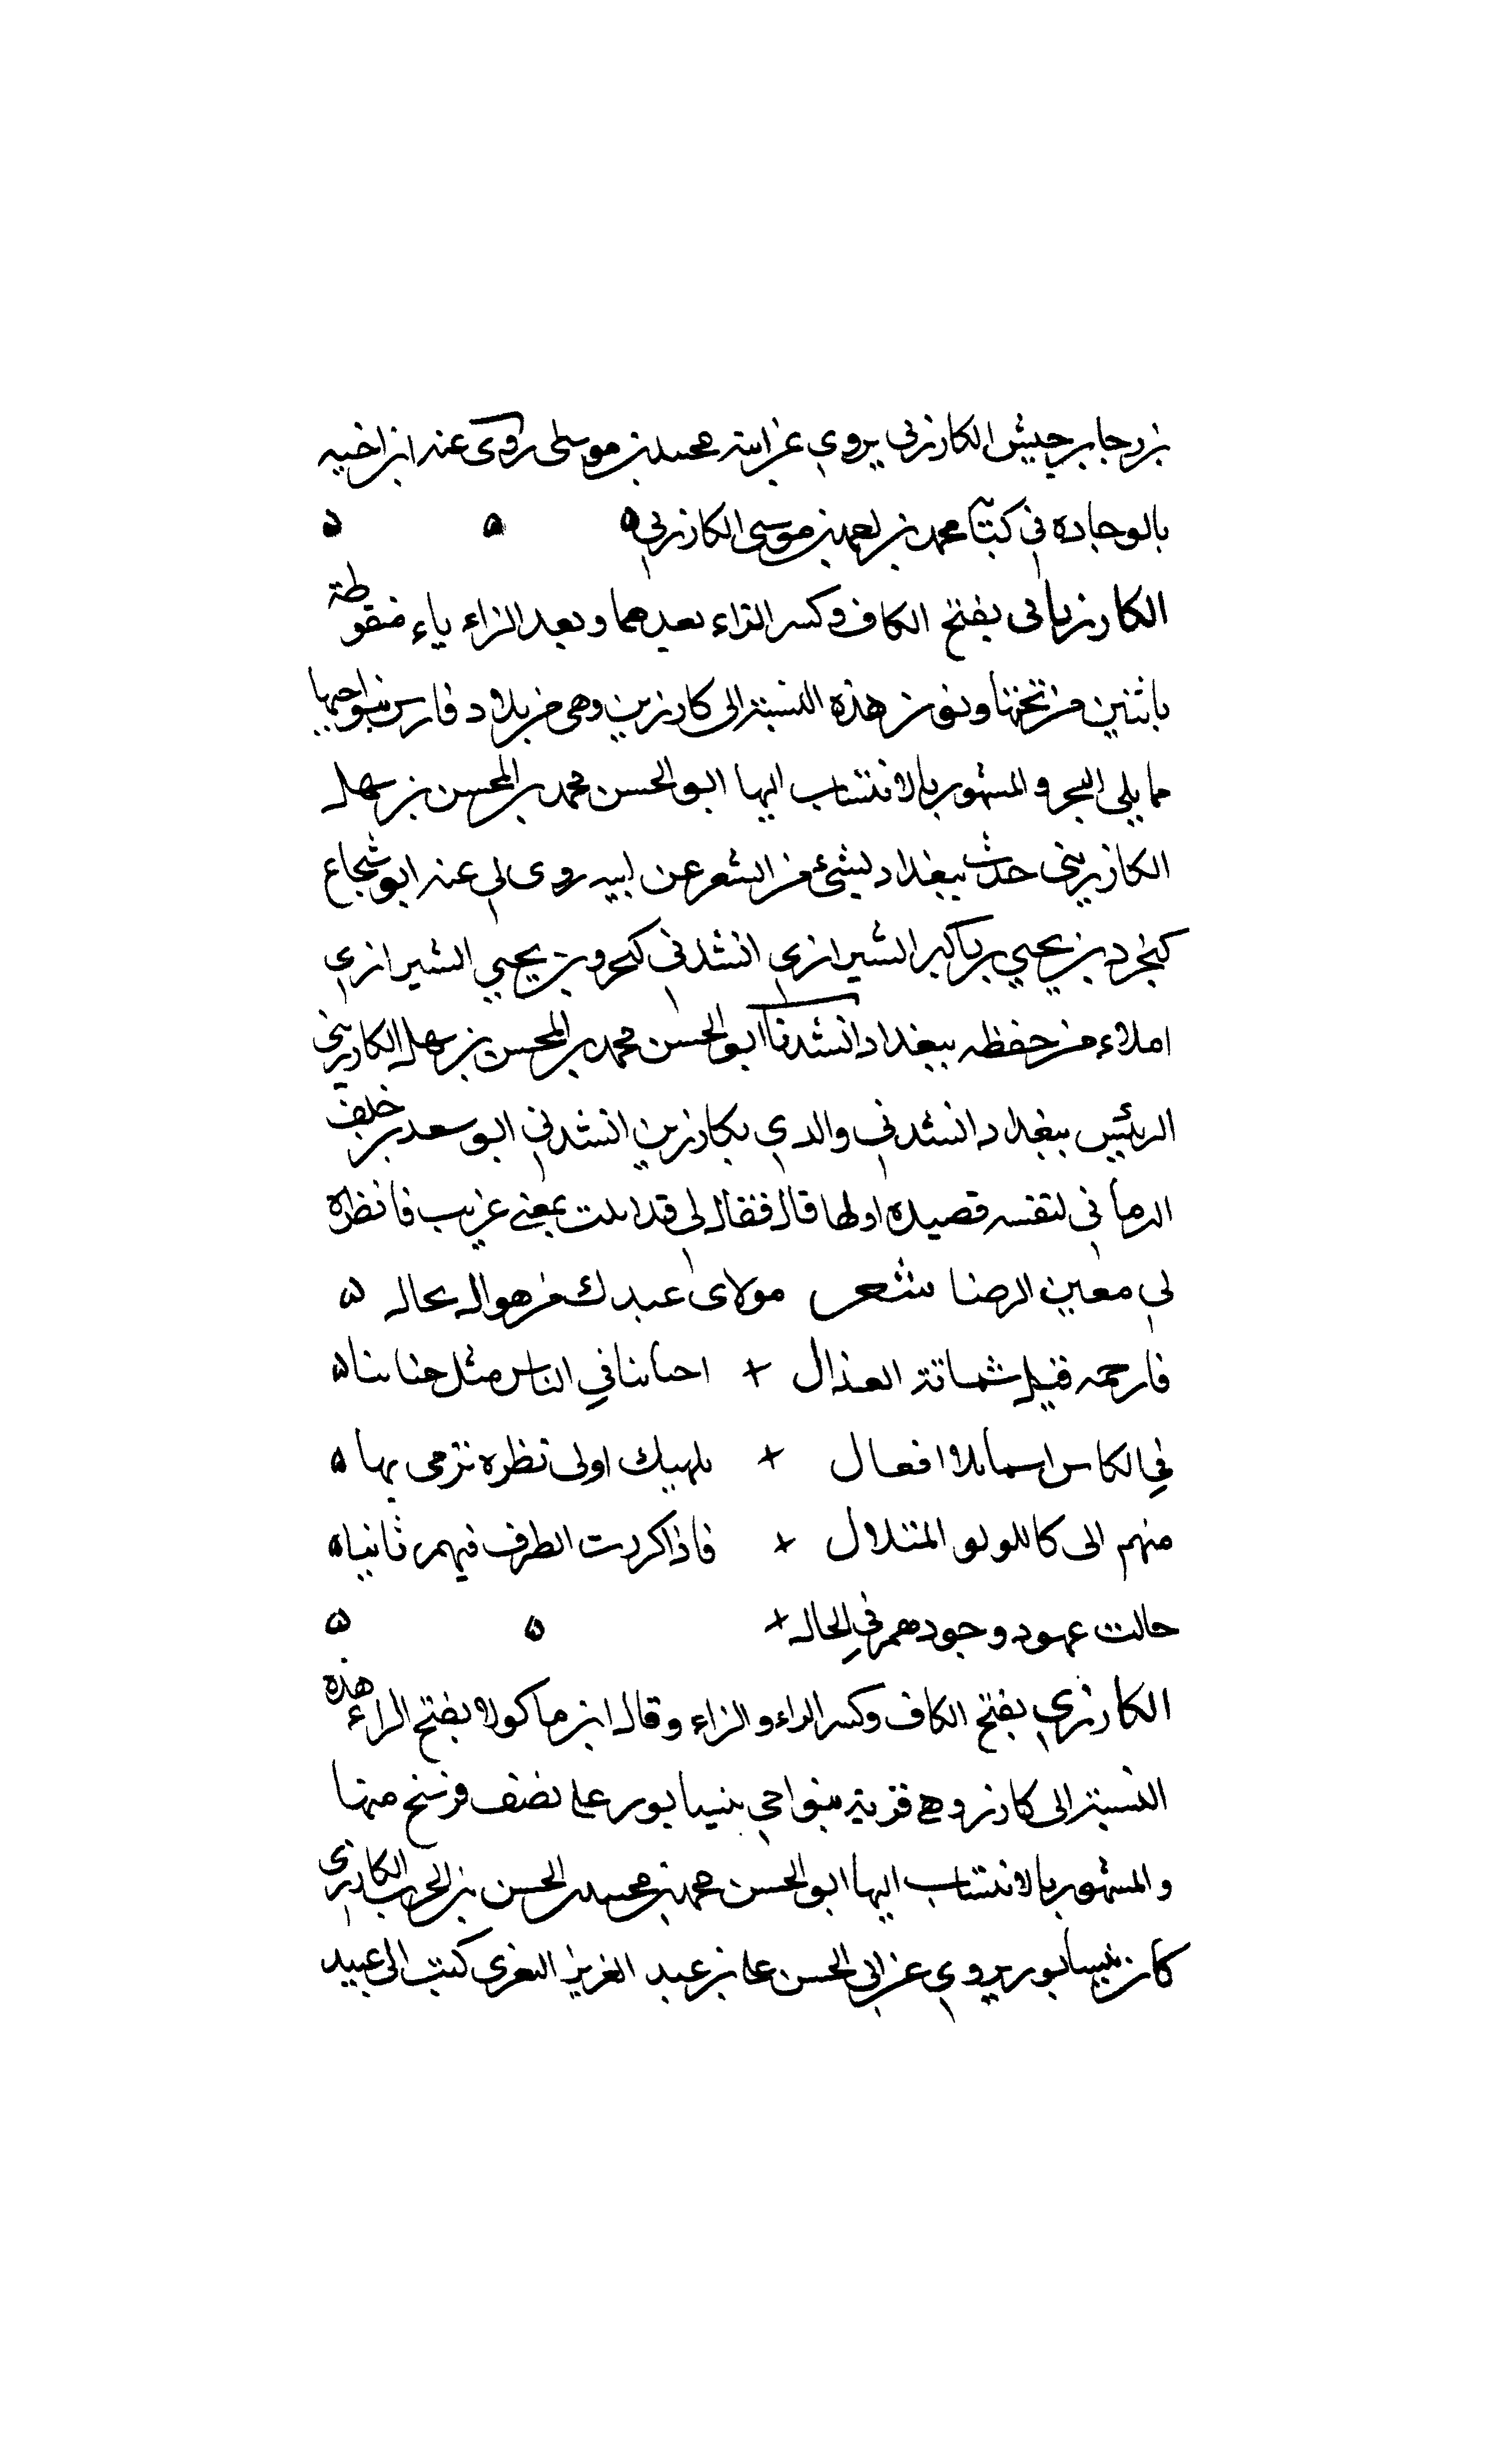 بن رجا بن حيش الكارزني يروي عن ابيه محمد بن موسى روى عنه ابن اخيه
بالوجاده في كتاب محمد بن احمد بن موسى الكارزني ه ه ه
الكارزياني بفتح الكاف وكسر الراء بعدهما وبعد الزاء ياء منقوطة
باثنين من تحتها ونون هذه النسبة الى كارزين وهي من بلاد فارس بنواحيها
مما يلي البحر والمشهور بالانتساب اليها ابو الحسن محمد بن المحسن بن سهل
الكارزيني حدث ببغداد بشئ من الشعر عن ابيه روى لي عنه ابو شجاع
كيخرد بن يحيي بن باكير الشيرازي انشدني كيحرو بن يحيي الشيرازي
املاء من حفظه ببغداد انشدنا ابو الحسن محمد بن المحسن بن سهل الكارزيني
الرئيس ببغداد انشدني والدي بكارزين انشدني ابو سعد بن خلف
الرماني لنفسه قصيده اولها قال فقال لي قد ابلت بمعنى غريب فانظره
لي معين الرضا شعر مولاى عبدك من هواله بحاله ه
فارحمه قبل شماتة العذال + احبابنا في الناس مثل حبابنا ه
في الكاس اسما بلا افعال + بلهيك اولى نظره ترمى بها ه
منهم الى كاللولو المتلال + فاذا كررت الطرف فيهم ثانيا ه
حالت عهود وجودهم في الحال + ه ه
الكارزي بفتح الكاف وكسر الراء والزاء وقال ابن ماكولا بفتح الراء هذه
النسبة الى كارز وهي قرية بنواحي نيسابور على نصف فرسخ منها
والمشهور بالانتساب اليها ابو الحسن محمد بن محمد بن الحسن بن الحرب الكارزي
كان بنيسابور يروي عن ابي الحسن علي بن عبد العزيز البغوى كتب ابي عبيد